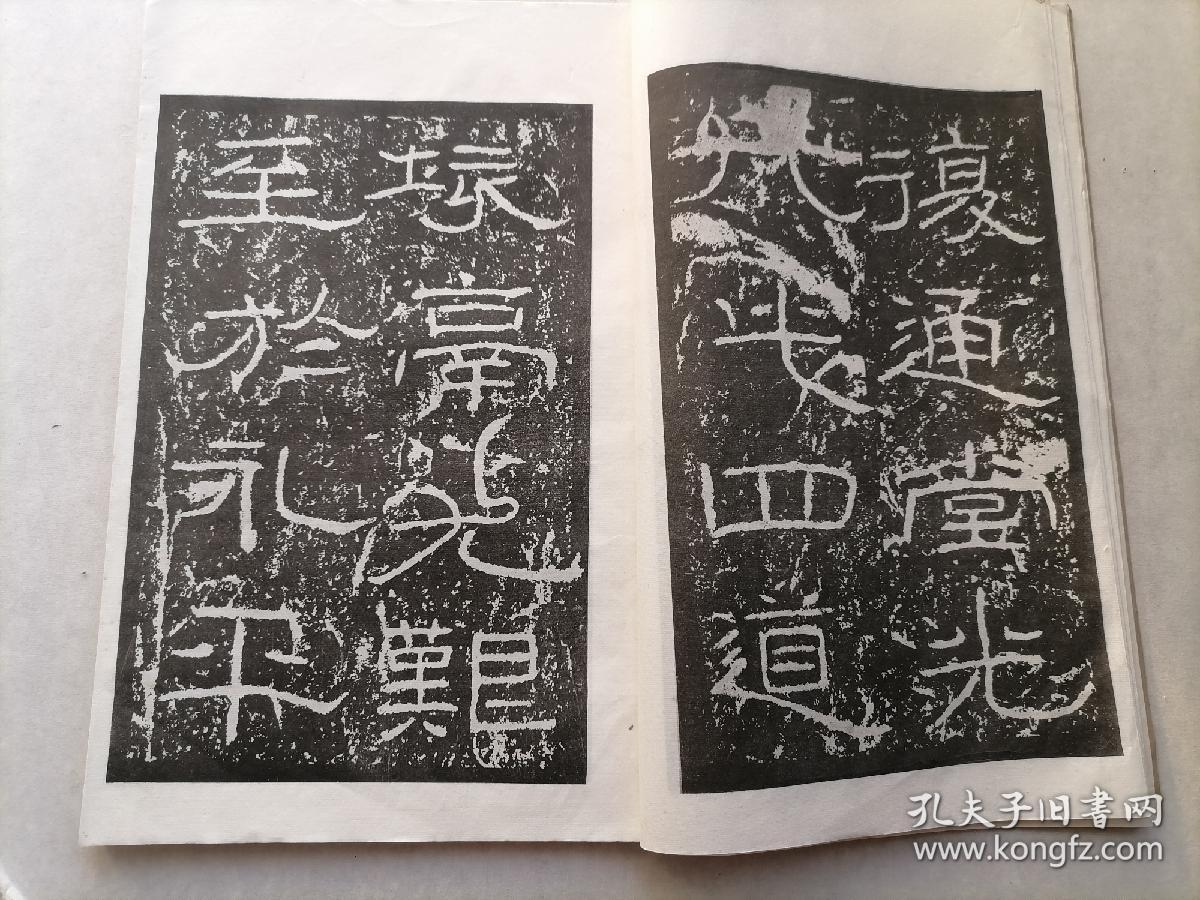 復通堂光
凡此四道
垓鬲尤艱
至於永平
孔夫子旧書网
www.kongfz.com